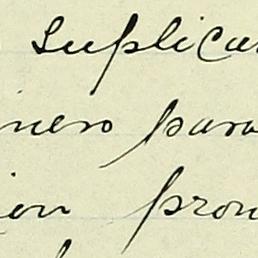 suplica
nero para
ion pron